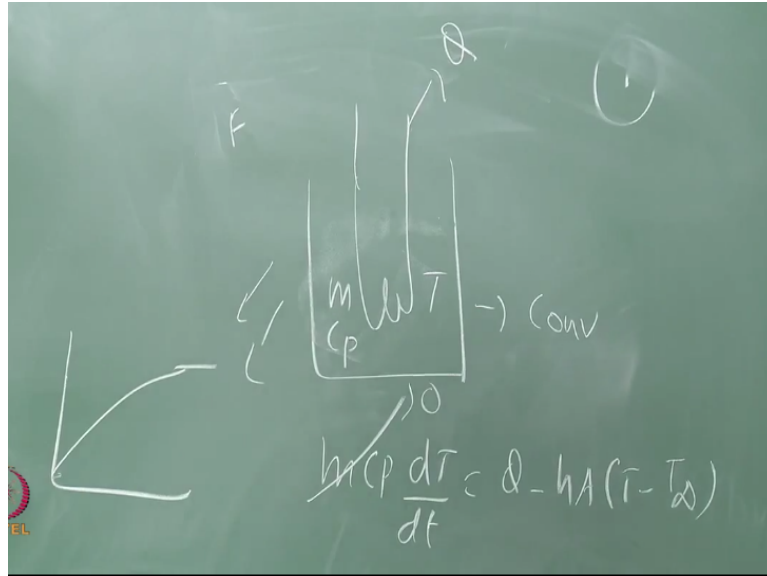 Q
F
m T
Cp → Conv
0
mCp dT/dt = Q - hA(T - T∞)